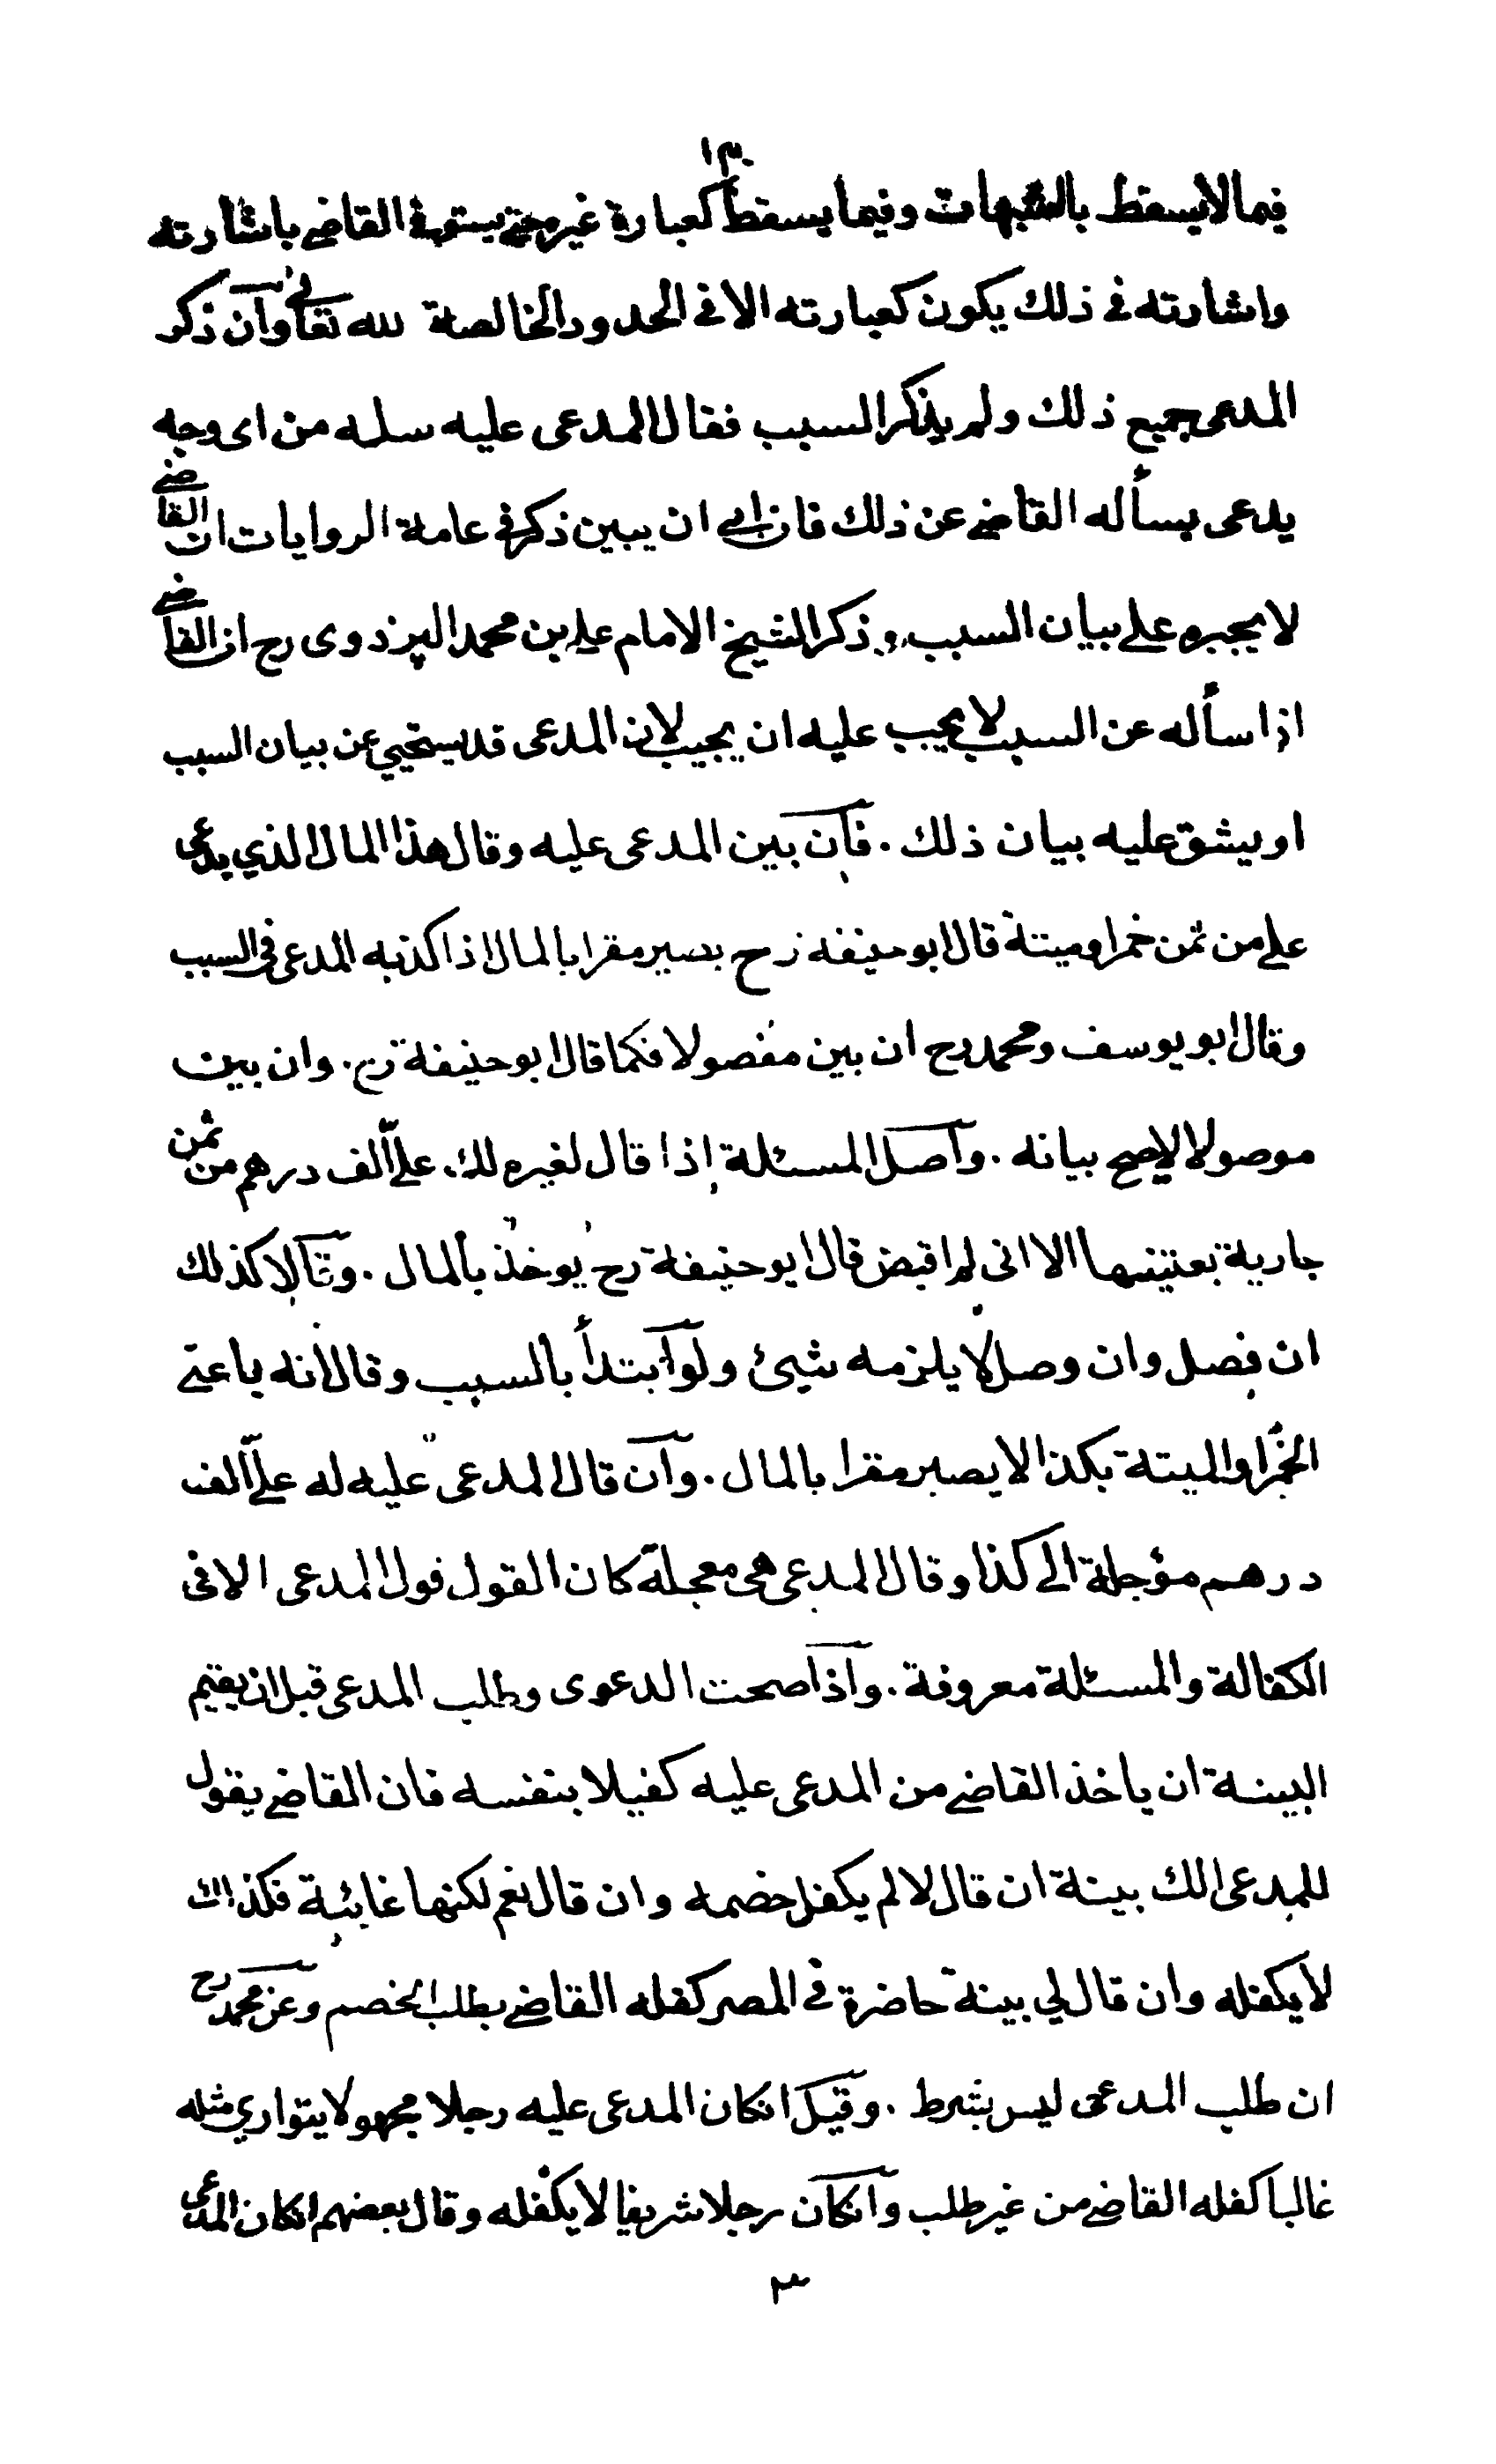 فيما لا يسقط بالشبهات وفيما يسقط كعبارة غيره حتى يستوفي القاضي باشارته
واشارته في ذلك يكون كعبارته الا في الحدود الخالصة لله تعالى وان ذكر
المدعى جميع ذلك ولم يذكر السبب فقال المدعى عليه سله من اى وجه
يدعى يسأله القاضي عن ذلك فان ابى ان يبين ذكر في عامة الروايات ان القاضي
لا يجبره على بيان السبب وذكر الشيخ الامام علي بن محمد البزدوى رح ان القاضي
اذا سأله عن السبب لا يجب عليه ان يجيب لان المدعى قد يستحيي عن بيان السبب
او يشق عليه بيان ذلك . فان بين المدعى عليه وقال هذا المال الذي يدعى
علي من ثمن خمر او ميتة قال ابو حنيفه رح يصير مقرا بالمال اذا كذبه المدعى في السبب
وقال ابو يوسف ومحمد رح ان بين مفصولا فكما قال ابو حنيفة رح . وان بين
موصولا لا يصح بيانه . واصل المسئلة اذا قال لغيره لك على الف درهم من ثمن
جارية بعتنيها الا انى لم اقبض قال ابو حنيفة رح يوخذ بالمال . وقالا كذلك
ان فصل وان وصل لا يلزمه شيئ ولو ابتدأ بالسبب وقال انه باعنى
الخمر او الميتة بكذا لا يصير مقرا بالمال . وان قال المدعى عليه له على الف
درهم مؤجلة الى كذا وقال المدعى هى معجلة كان القول قول المدعى الا فى
الكفالة والمسئلة معروفة . واذا صحت الدعوى وطلب المدعى قبل ان يقيم
البينة ان ياخذ القاضي من المدعى عليه كفيلا بنفسه فان القاضي يقول
للمدعى الك بينة ان قال لا لم يكفل خصمه وان قال نعم لكنها غائبة فكذلك
لا يكفله وان قال لي بينة حاضرة في المصر كفله القاضي بطلب الخصم وعن محمد رح
ان طلب المدعى ليس بشرط . وقيل انكان المدعى عليه رجلا مجهولا يتواري مثله
غالبا كفله القاضي من غير طلب وانكان رجلا شريفا لا يكفله وقال بعضهم انكان المدعى